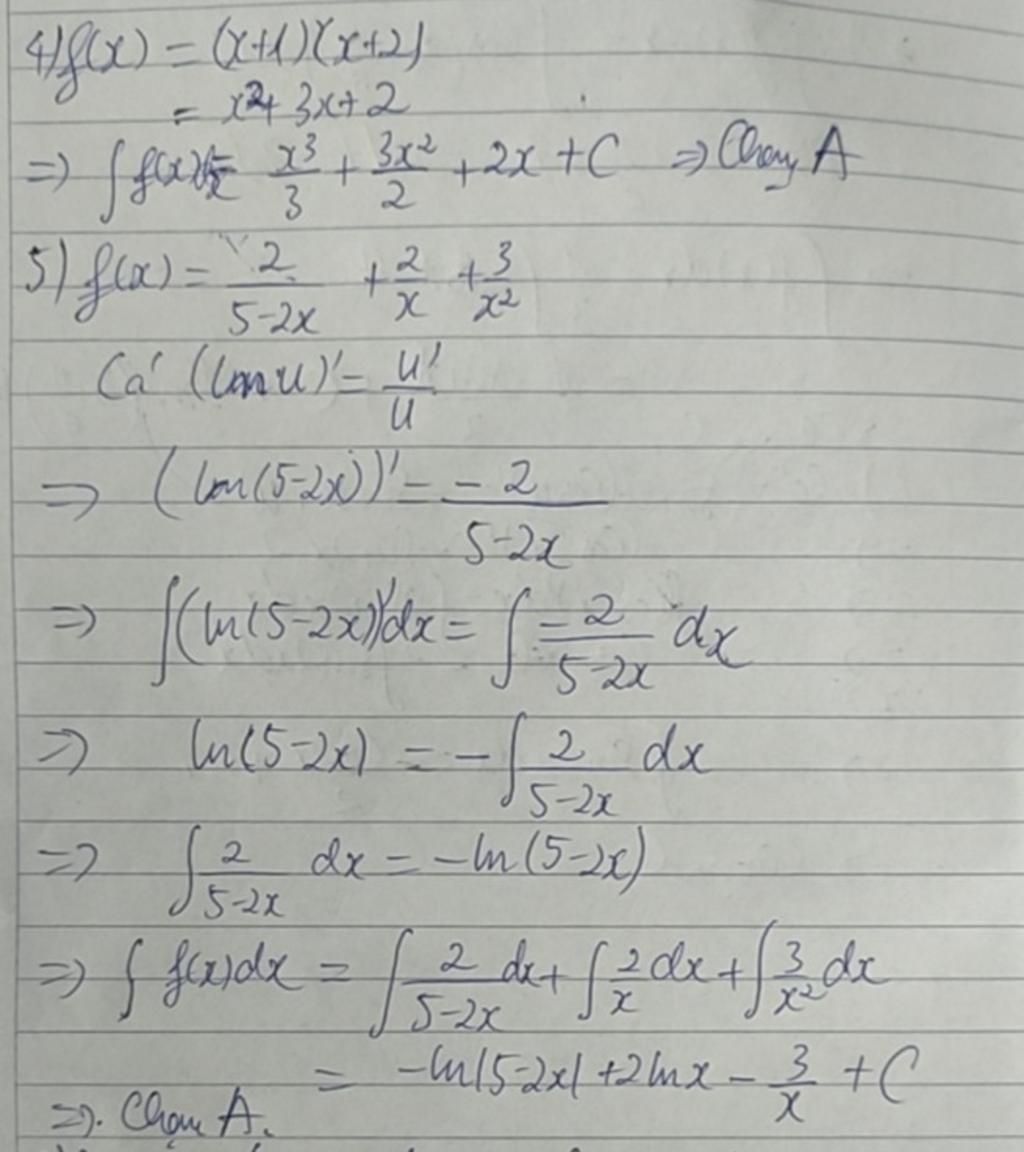 4) f(x) = (x+1)(x+2)
= x²+ 3x+ 2
=> ∫ f(x)dx = x³/3 + 3x²/2 + 2x + C => Chọn A
5) f(x) = 2/(5-2x) + 2/x + 3/x²
Có (ln u)' = u'/u
=> (ln(5-2x))' = -2/(5-2x)
=> ∫(ln(5-2x))'dx = ∫ -2/(5-2x) dx
=> ln(5-2x) = -∫ 2/(5-2x) dx
=> ∫ 2/(5-2x) dx = -ln(5-2x)
=> ∫ f(x)dx = ∫ 2/(5-2x) dx + ∫ 2/x dx + ∫ 3/x² dx
= -ln|5-2x| + 2lnx - 3/x + C
=>. Chọn A.